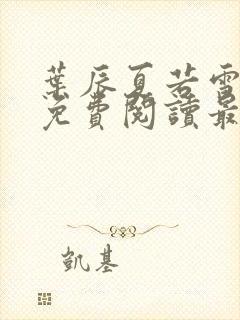 葉辰夏若雪
免費閱讀最
凱基